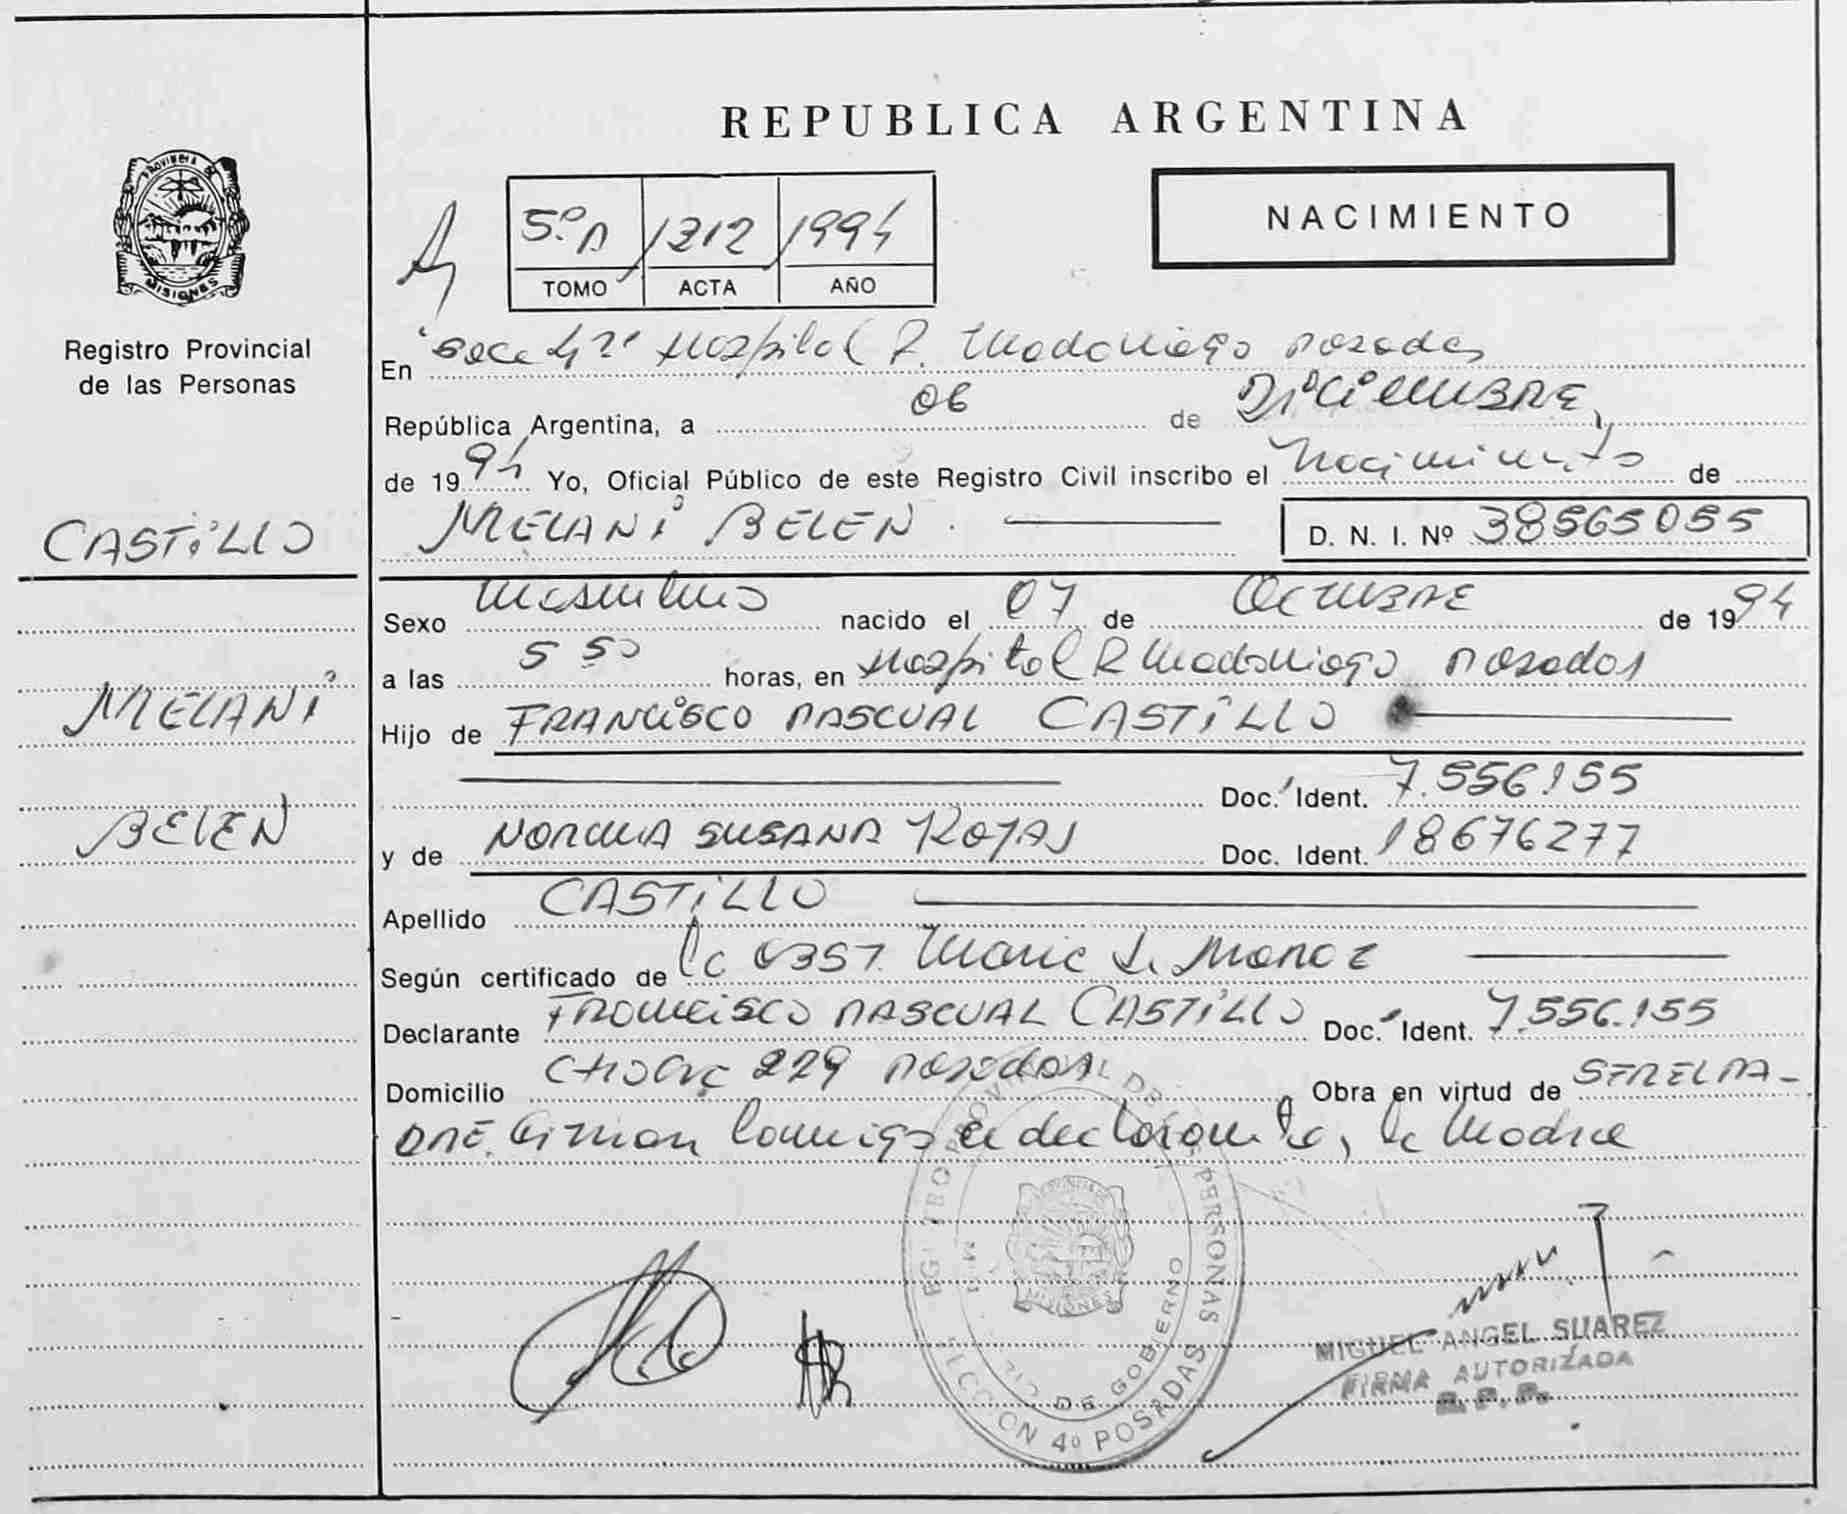 REPUBLICA ARGENTINA
NACIMIENTO
5º A 1312 1994
TOMO ACTA AÑO
PROVINCIA DE
MISIONES
Registro Provincial
de las Personas
CASTILLO
MELANI
BELEN
En Secc 4ª Hospital R. Madariaga Posadas
República Argentina, a 06 de DICIEMBRE
de 1994 Yo, Oficial Público de este Registro Civil inscribo el Nacimiento de
MELANI BELEN D. N. I. Nº 38565055
Sexo Masculino nacido el 07 de OCTUBRE de 1994
a las 5 50 horas, en Hospital R Madariaga Posadas
Hijo de FRANCISCO PASCUAL CASTILLO
Doc. Ident. 7.556.155
y de NORMA SUSANA ROJAS Doc. Ident. 18676277
Apellido CASTILLO
Según certificado de la OBST. Maria
Declarante FRANCISCO PASCUAL CASTILLO Doc. Ident. 7.556.155
Domicilio 229 Posadas Obra en virtud de SER EL PA-
DRE. Firman conmigo el declarante, la Madre
PERSONAS
MISIONES
DE GOBIERNO
4º POSADAS
MIGUEL ANGEL SUAREZ
FIRMA AUTORIZADA
R. P. P.